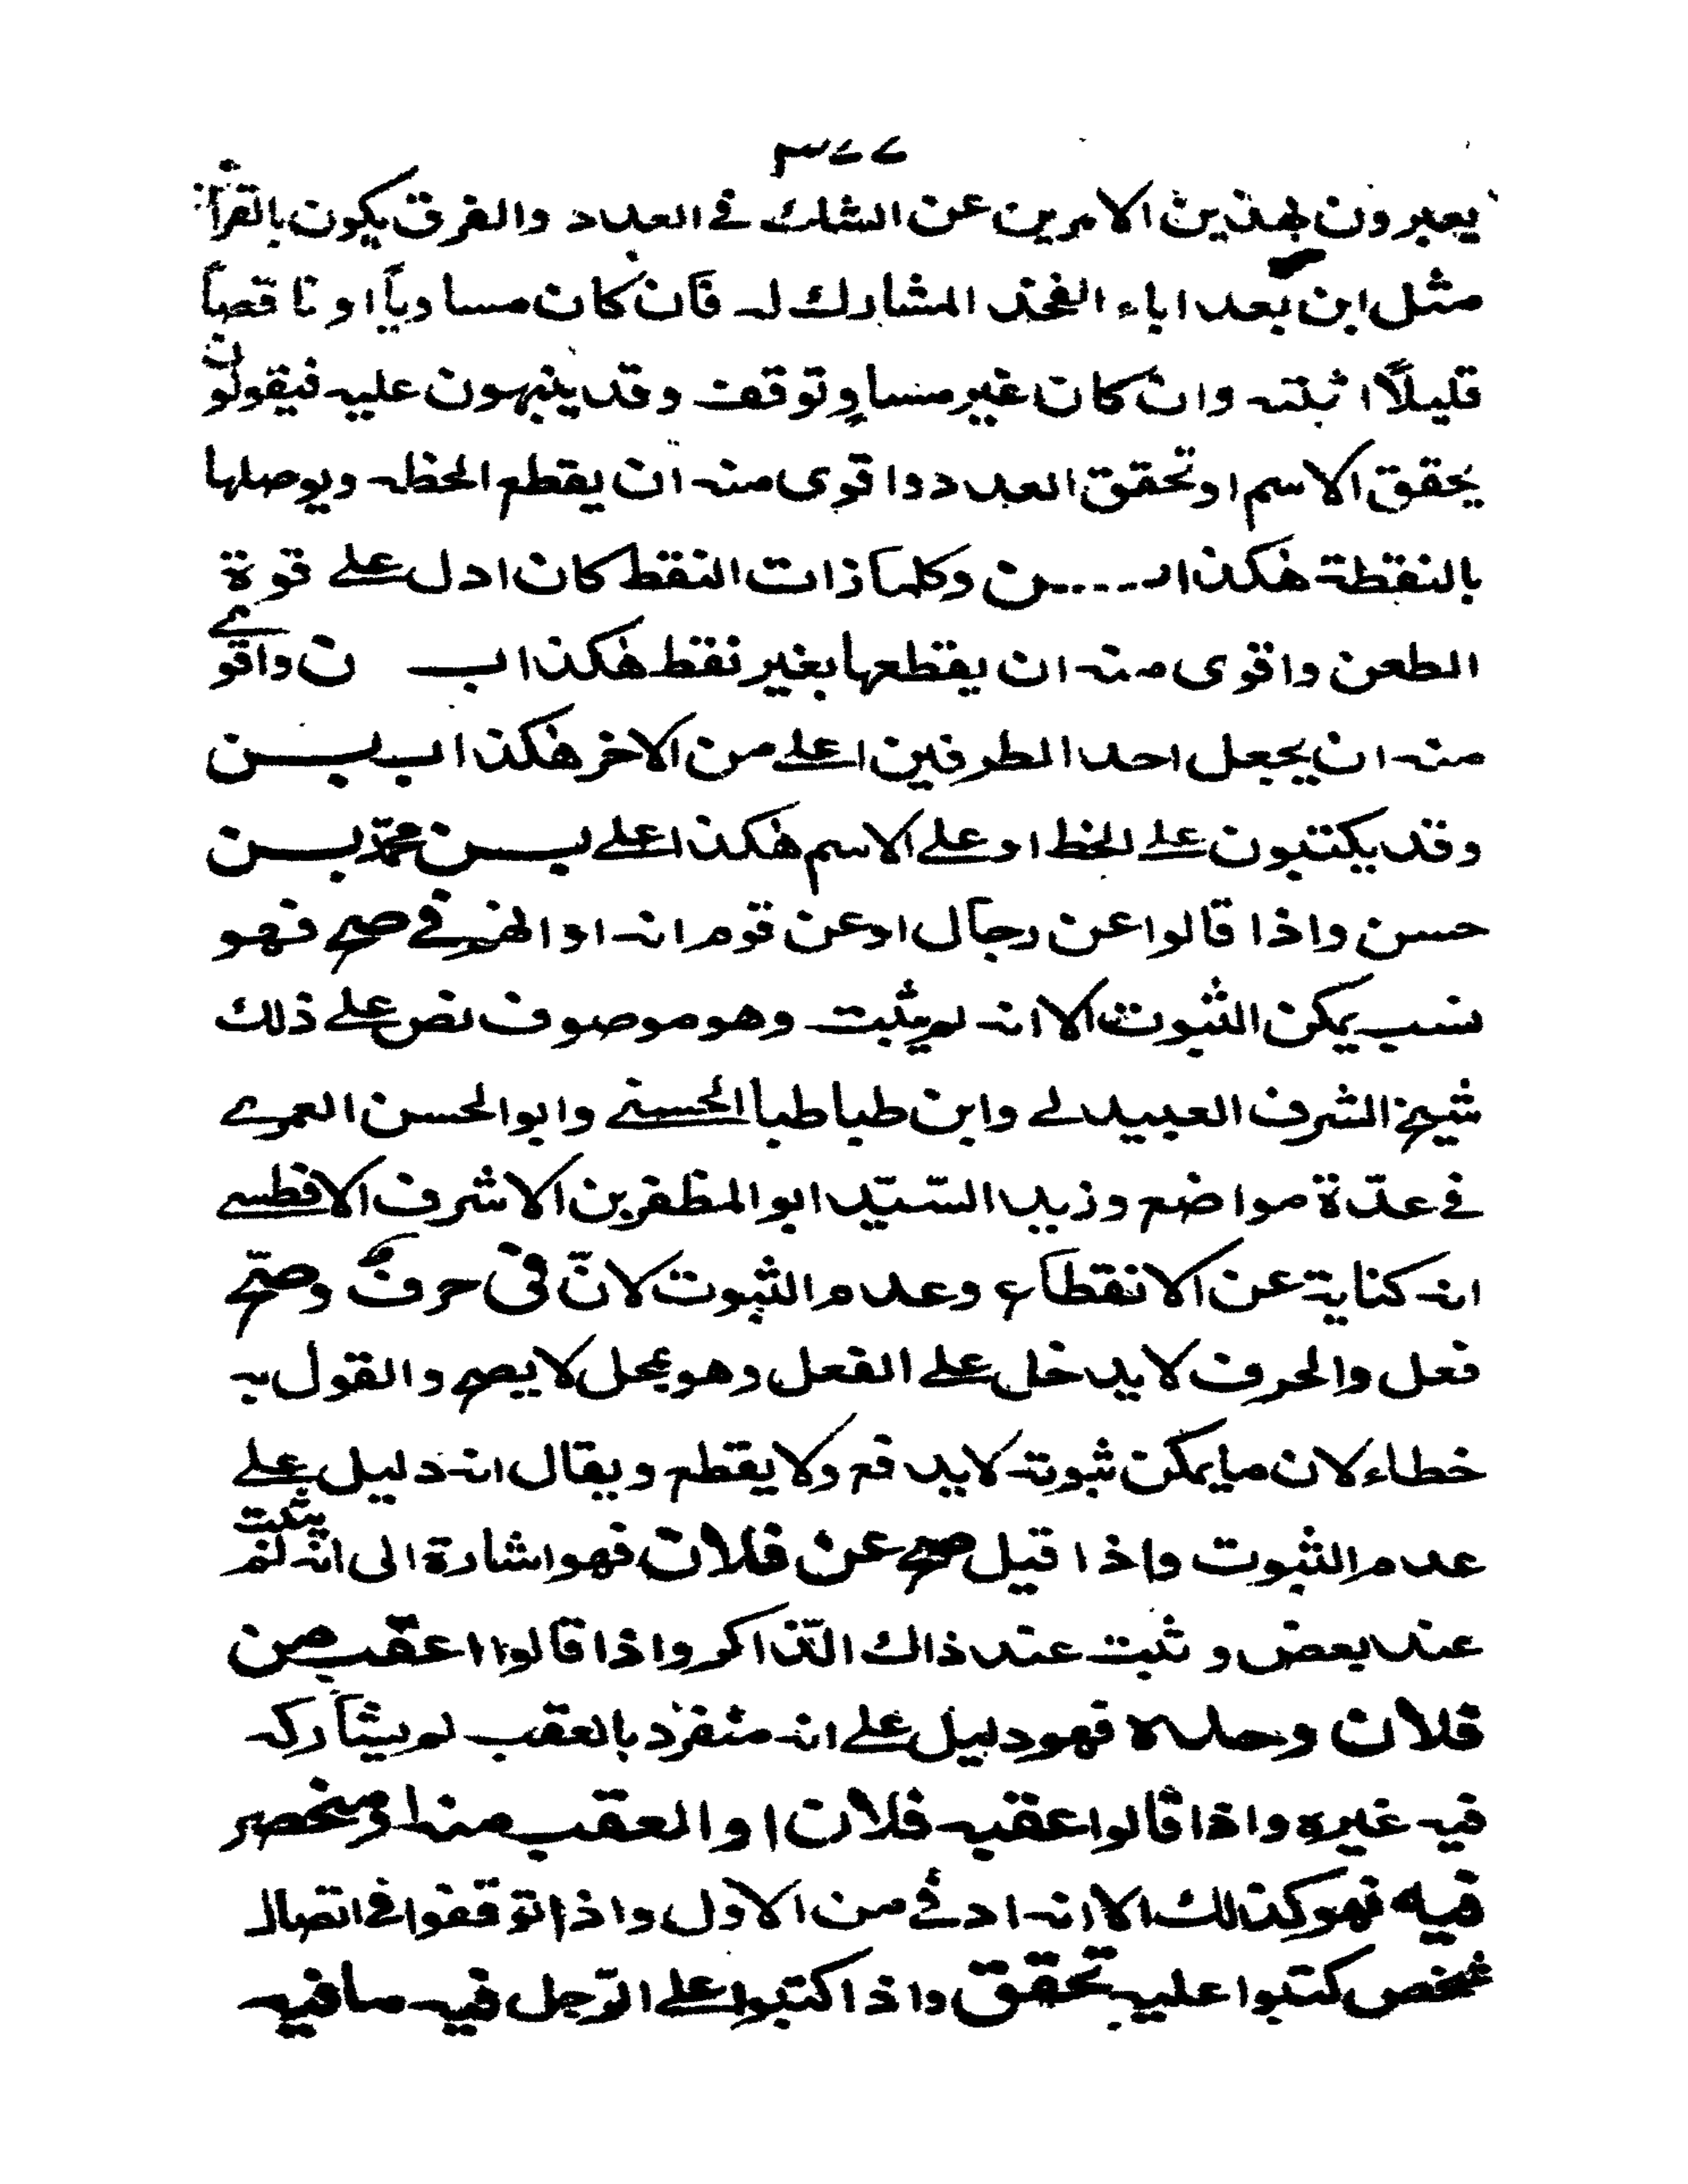 ٣٧٧
يعبرون بهذين الامرين عن الشك فى العدد والفرق يكون بالقرائن
مثل ابن بعد اباء الفخذ المشارك له فان كان مساوياً او ناقصاً
قليلاً اثبته وان كان غير مساوٍ توقف وقد ينبهون عليه فيقولون
يحقق الاسم او تحقق العدد واقوى منه ان يقطع الخط ويوصلها
بالنقطة هكذا ابـ....ـن وكلما زات النقط كان ادل على قوة
الطعن واقوى منه ان يقطعها بغير نقط هكذا ابـ ن واقوى
منه ان يجعل احد الطرفين اعلى من الاخر هكذا ابـ بـــن
وقد يكتبون على الخط او على الاسم هكذا على بـــن محمّد بـــن
حسن واذا قالوا عن رجال او عن قوم انه او انهم فى صح فهو
نسب يمكن الثبوت الا انه لم يثبت وهو موصوف نص على ذلك
شيخ الشرف العبيدلى وابن طباطبا الحسنى وابو الحسن العمرى
فى عدّة مواضع وزيد السّيّد ابو المظفر بن الاشرف الافطسى
انه كناية عن الانقطاع وعدم الثبوت لانّ فى حرفٌ وصحّ
فعل والحرف لا يدخل على الفعل وهو بمحل لا يصح والقول به
خطاء لان ما يمكن ثبوته لا يدفع ولا يقطع ويقال انه دليل على
عدم الثبوت واذا قيل صح عن فلان فهو اشارة الى انه لم يثبت
عند بعض وثبت عند ذاك الذاكر واذا قالوا اعقب من
فلان وحده فهو دليل على انه منفرد بالعقب لم يشاركه
فيه غيره واذا قالوا عقبه فلان او العقب منه او منحصر
فيه فهو كذلك الا انه ادنى من الاول واذا توقفوا فى اتصال
شخص كتبوا عليه تحقق واذا كتبوا على الرّجل فيه ما فيه